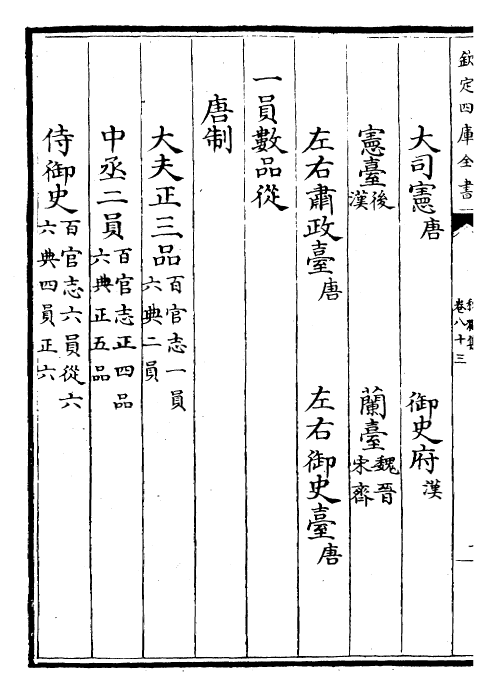 欽定四庫全書
卷八十三
大司憲唐 御史府漢
憲臺後漢 蘭臺魏晉宋齊
左右肅政臺唐 左右御史臺唐
一員數品從
唐制
大夫正三品百官志一員六典二員
中丞二員百官志正四品六典正五品
侍御史百官志六員從六六典四員正六